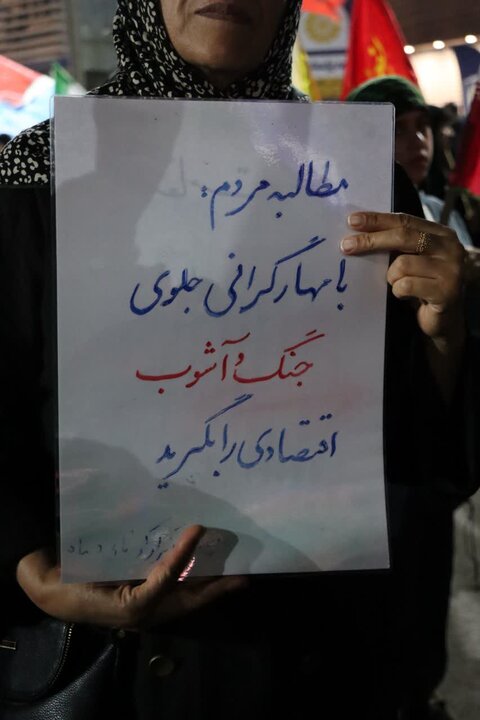 مطالبه مردم:
با مهار گرانی جلوی
جنگ و آشوب
اقتصادی را بگیرید